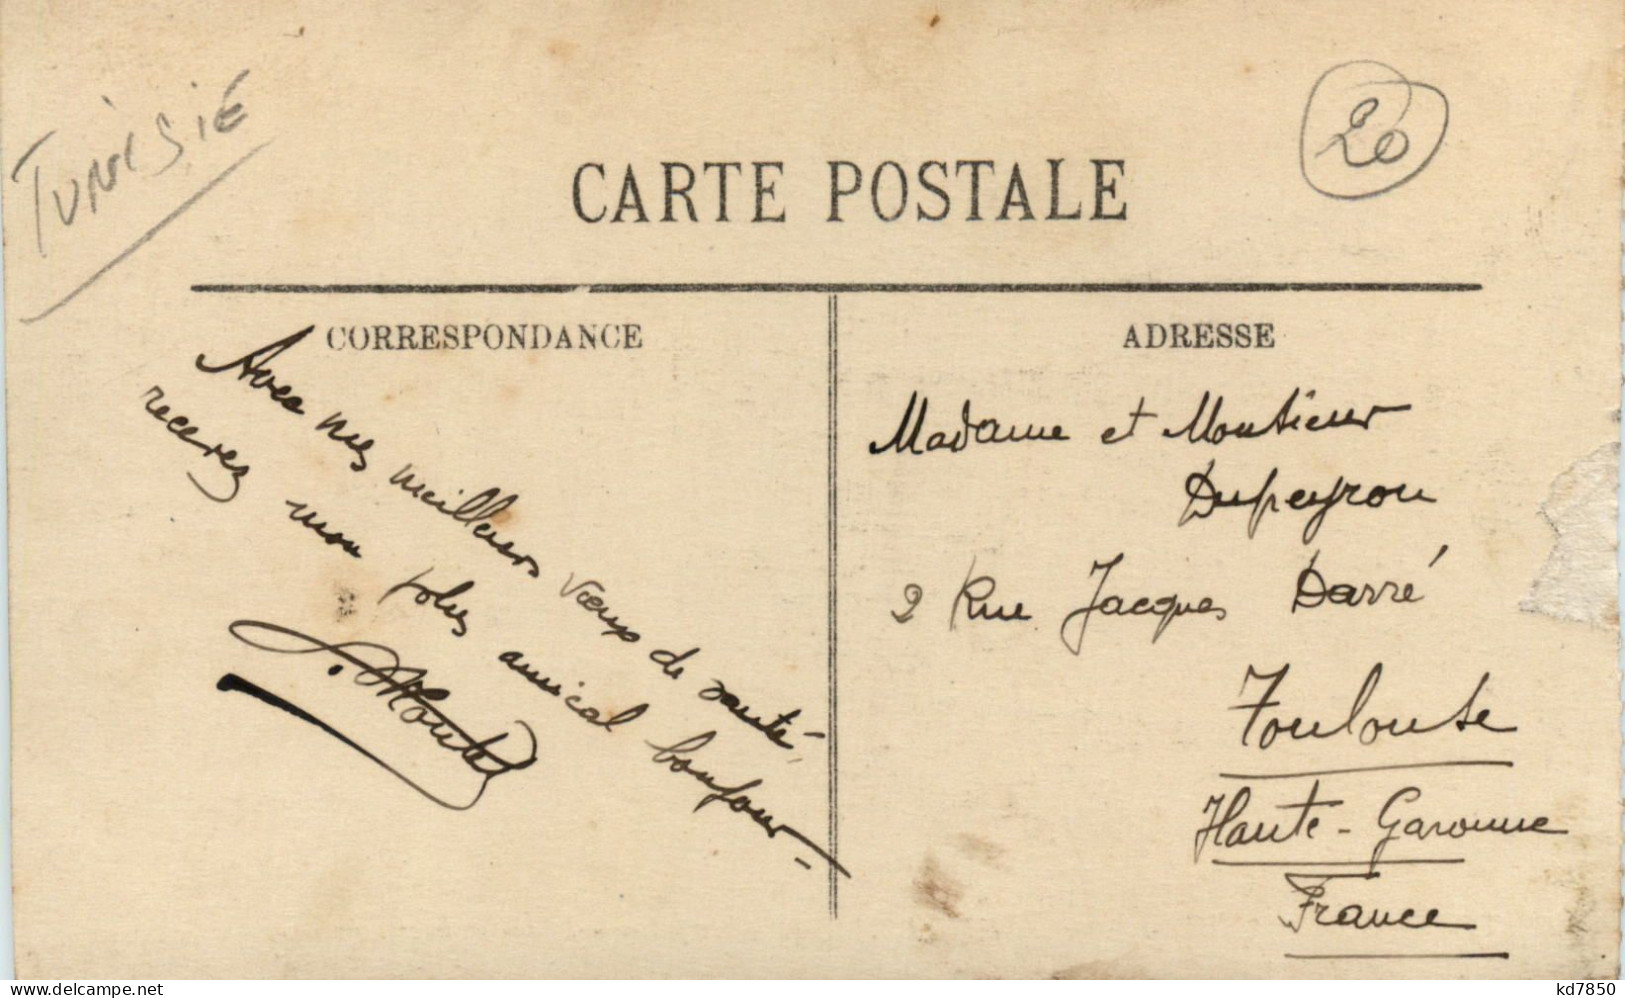 TUNISIE
20
CARTE POSTALE
CORRESPONDANCE
Avec mes meilleurs vœux de santé,
recevez mon plus amical bonjour -
ADRESSE
Madame et Monsieur
Dupeyron
2 Rue Jacques Darré
Toulouse
Haute-Garonne
France
kd7850